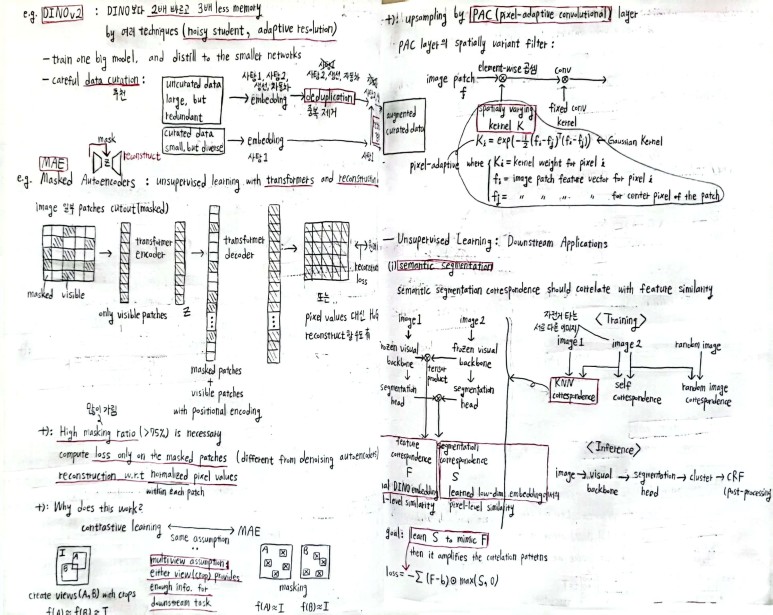 e.g. DINOv2 : DINO보다 2배 빠르고 3배 less memory
by 여러 techniques (noisy student, adaptive resolution)
- train one big model, and distill to the smaller networks
- careful data curation :
추천
uncurated data
large, but
redundant
사람1, 사람2,
생선, 자동차
embedding
deduplication
중복 제거
curated data
small, but diverse
embedding
사람1
augmented
curated data
mask
MAE
Z
reconstruct
e.g. Masked Autoencoders : unsupervised learning with transformers and
image 일부 patches cutout (masked)
masked visible
transformer
encoder
only visible patches
Z
transformer
decoder
masked patches
+
visible patches
with positional encoding
loss
또는
pixel values 대신
많이 가림
+): High masking ratio (>75%) is necessary
compute loss only on the masked patches (different from denoising autoencoders)
reconstruction w.r.t normalized pixel values
within each patch
+): Why does this work?
contrastive learning ↔ MAE
same assumption
multiview assumption;
either view (crop) provides
enough info. for
downstream task
I
A
B
create views (A, B) with crops
f(A) ≈ f(B) ≈ I
A
B
masking
f(A) ≈ I f(B) ≈ I
+): upsampling by PAC (pixel-adaptive convolutional) layer
PAC layer의 spatially variant filter :
element-wise 곱셈
conv
image patch
f
spatially varying
kernel K
fixed conv
kernel
pixel-adaptive
Ki = exp(-½(fi-fj)ᵀ(fi-fj)) ← Gaussian Kernel
where { Ki = kernel weight for pixel i
fi = image patch feature vector for pixel i
fj = " " " for center pixel of the patch
- Unsupervised Learning : Downstream Applications
(i) semantic segmentation
semantic segmentation correspondence should correlate with feature similarity
image1
image 2
frozen visual
backbone
tensor
product
segmentation
head
segmentation
head
feature
correspondence
F
segmentation
correspondence
S
DINO embedding
learned low-dim. embedding
pixel-level similarity
<Training>
자전거 타는
image 1
image 2
random image
KNN
correspondence
self
correspondence
random image
correspondence
<Inference>
image → visual backbone → segmentation head → cluster → CRF
(post-processing)
goal: learn S to mimic F
then it amplifies the correlation patterns
loss = -∑ (F-b) ⊙ max(S, 0)